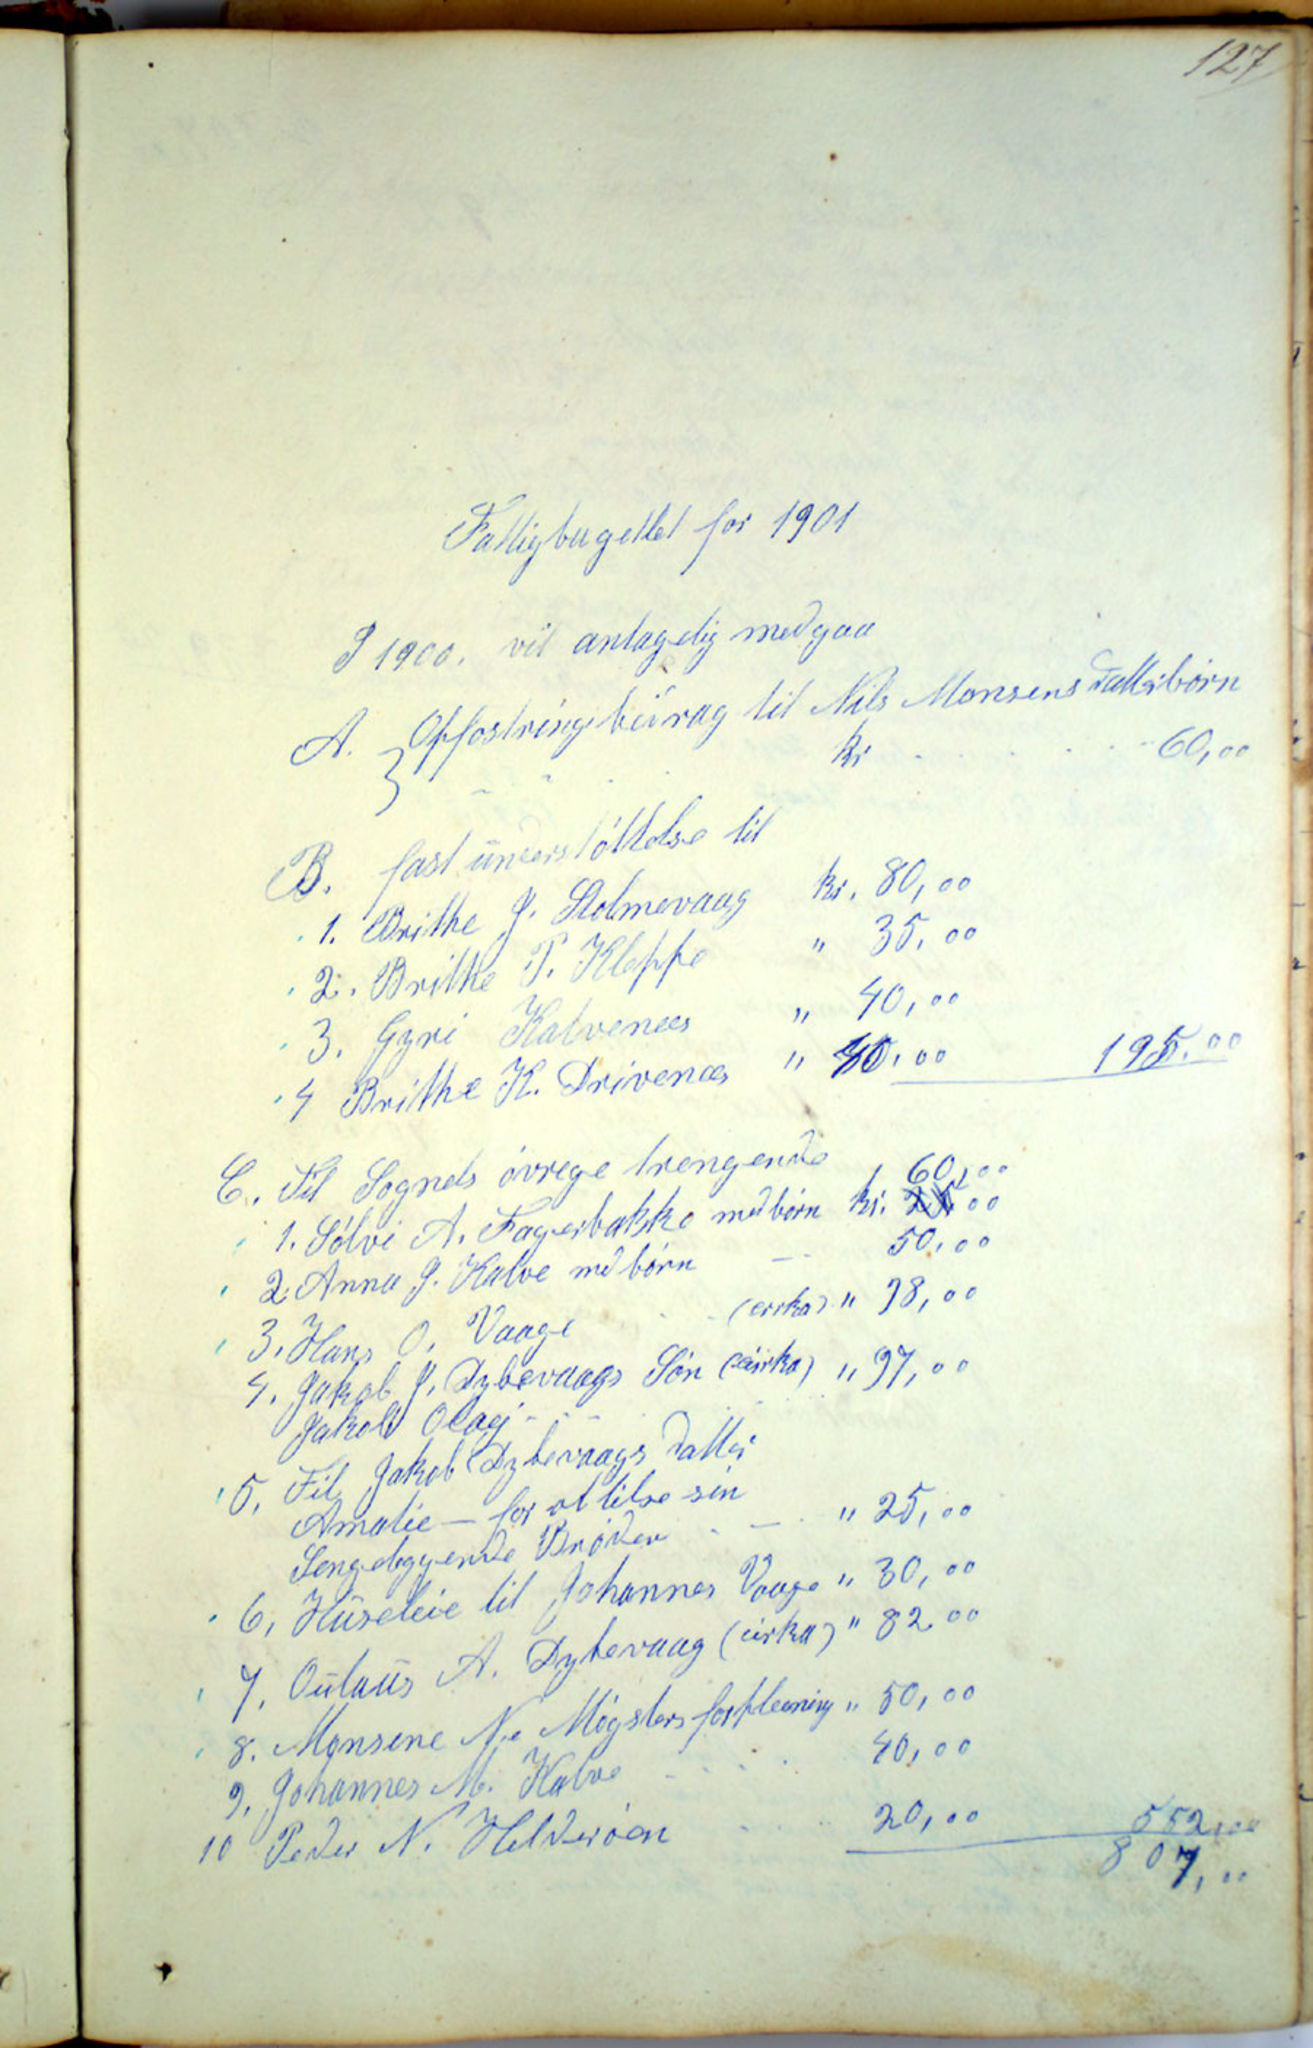 127
Fattigbugettet for 1901
I 1900. vil antagelig medgaa
A. Opfostringsbidrag til Nils Monsens Datterbørn
kr 60,00
B. fast understøttelse til
1. Brithe J. Stolmevaag kr. 80,00
2. Brithe P. Kleppe " 35,00
3. Gyri Kalvenes " 40,00
4 Brithe K. Drivenæs " 40,00 195.00
C. Til Sognets øvrege trengende
60,00
1. Sølvi A. Fagerbakke med børn kr. 25.00
2. Anna J. Kalve md børn 50,00
3. Hans O. Vaage (cirka) " 98,00
4. Jakob J. Dybevaags Søn (cirka) " 97,00
Jakob Olai
5. Til Jakob Dybevaags datter
Amalie – for at tilse sin
Sengeliggende Brøder – " 25,00
6. Huseleie til Johannes Vaage " 30,00
7. Oulaus A. Dybevaag (cirka) " 82.00
8. Monsine N. Møgsters forpleening " 50,00
9. Johannes M. Kalve 40,00
10 Peder N. Helderøen 20,00 552,00
807,00